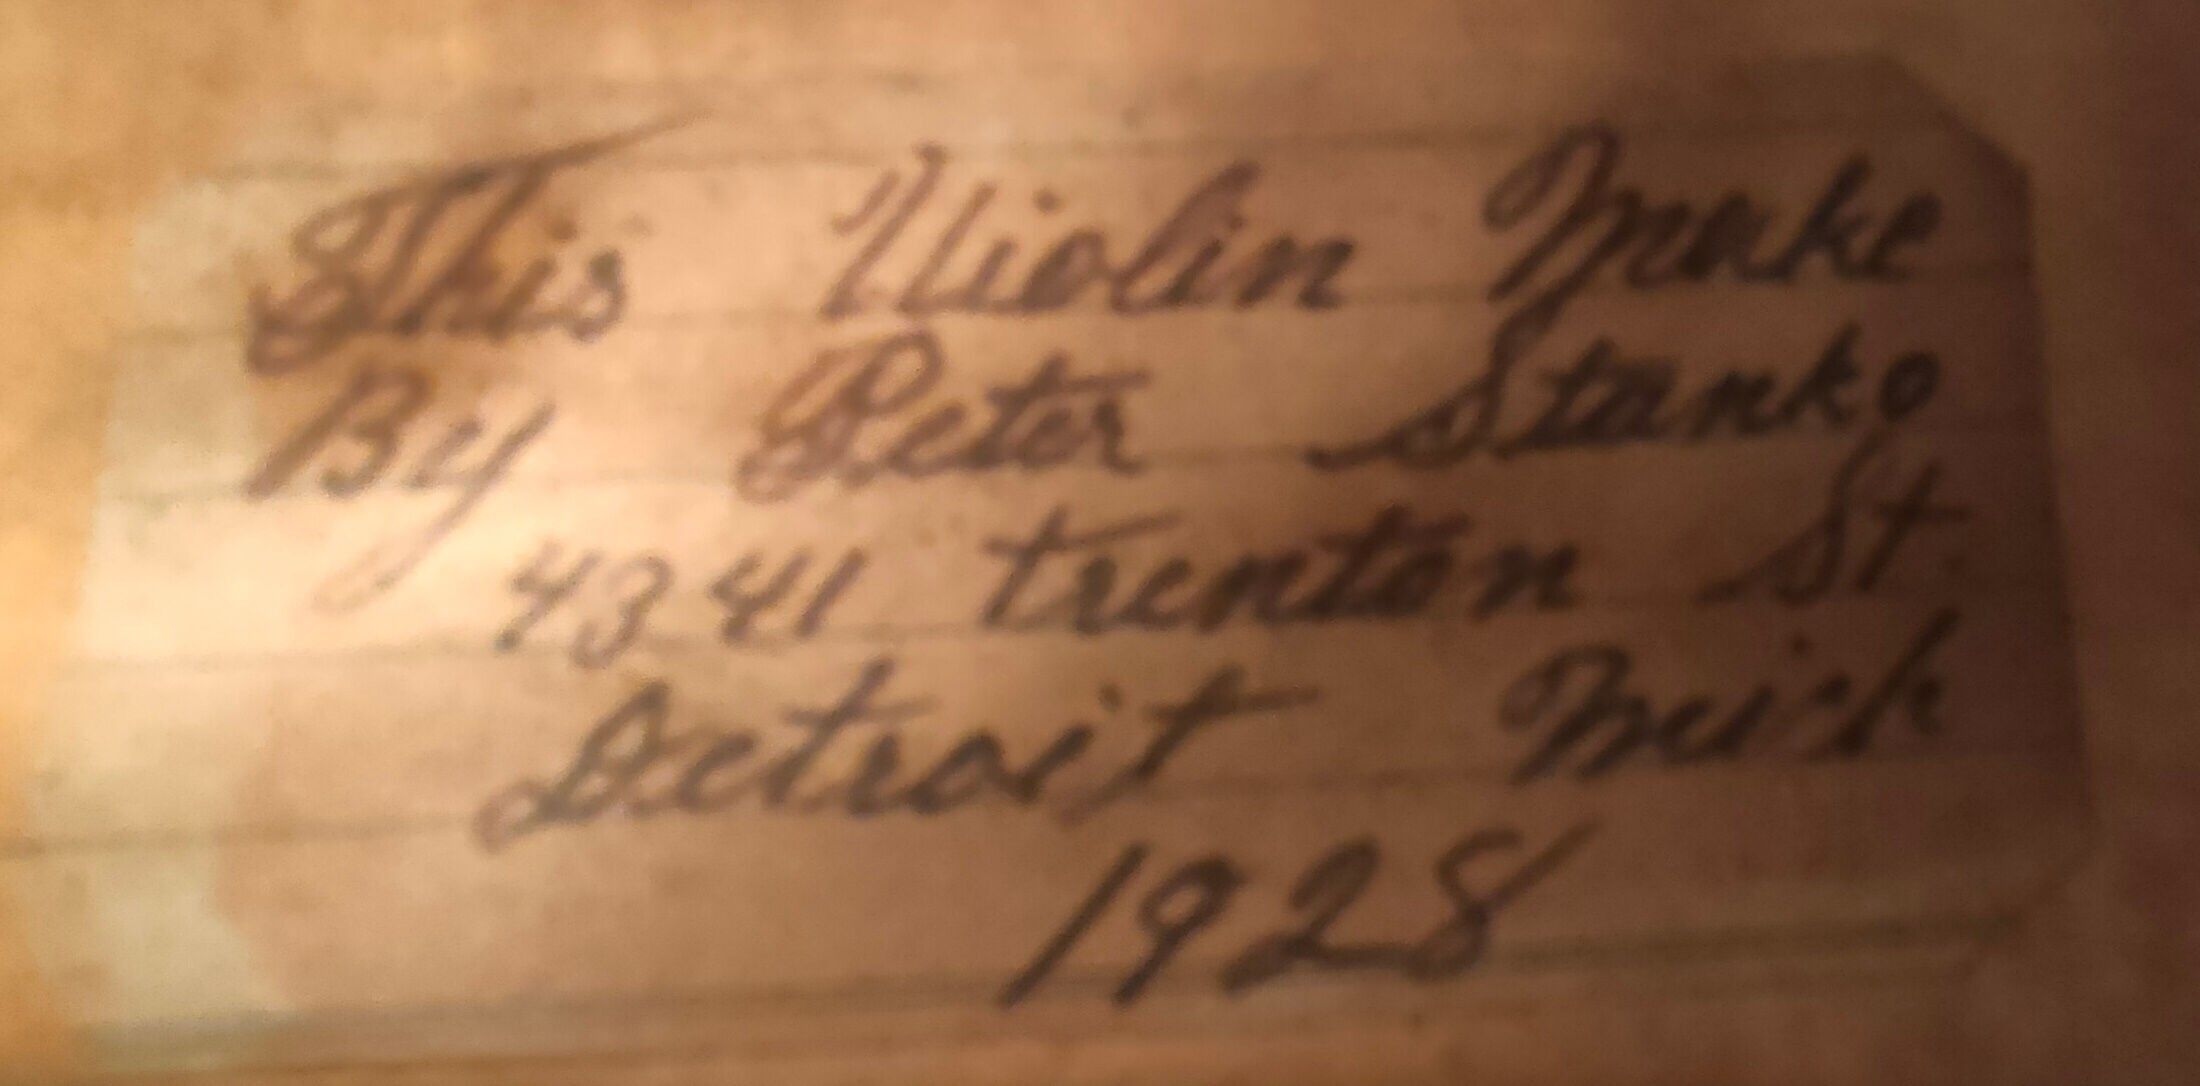 This Violin Make
By Peter Stanko
4341 trenton St.
Detroit Mich
1928